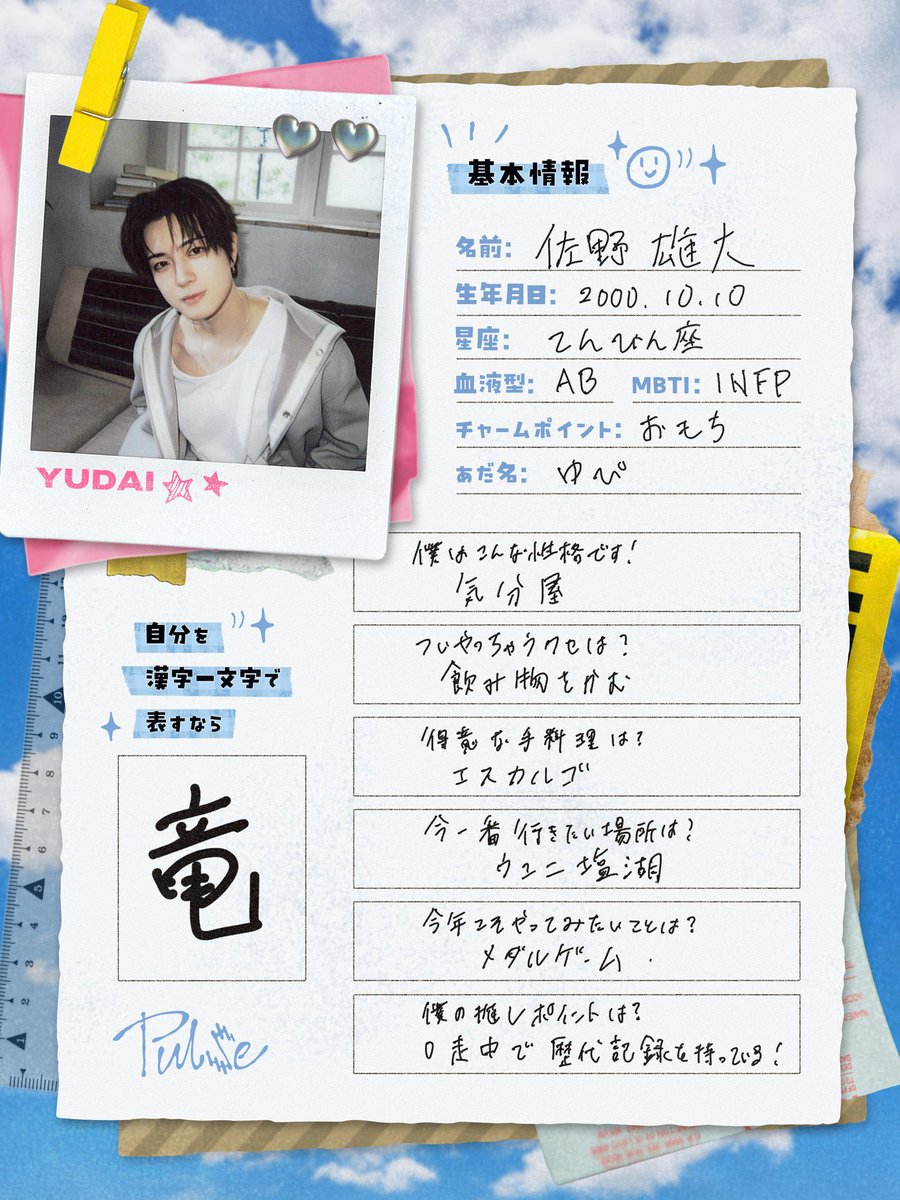 YUDAI
基本情報
名前: 佐野 雄大
生年月日: 2000.10.10
星座: てんびん座
血液型: AB MBTI: INFP
チャームポイント: おもち
あだ名: ゆぴ
僕はこんな性格です!
気分屋
ついやっちゃうクセは?
飲み物をかむ
得意な手料理は?
エスカルゴ
今一番行きたい場所は?
ウユニ塩湖
今年こそやってみたいことは?
メダルゲーム.
僕の推しポイントは?
口走中で歴代記録を持っている!
自分を
漢字一文字で
表すなら
竜
Pulse